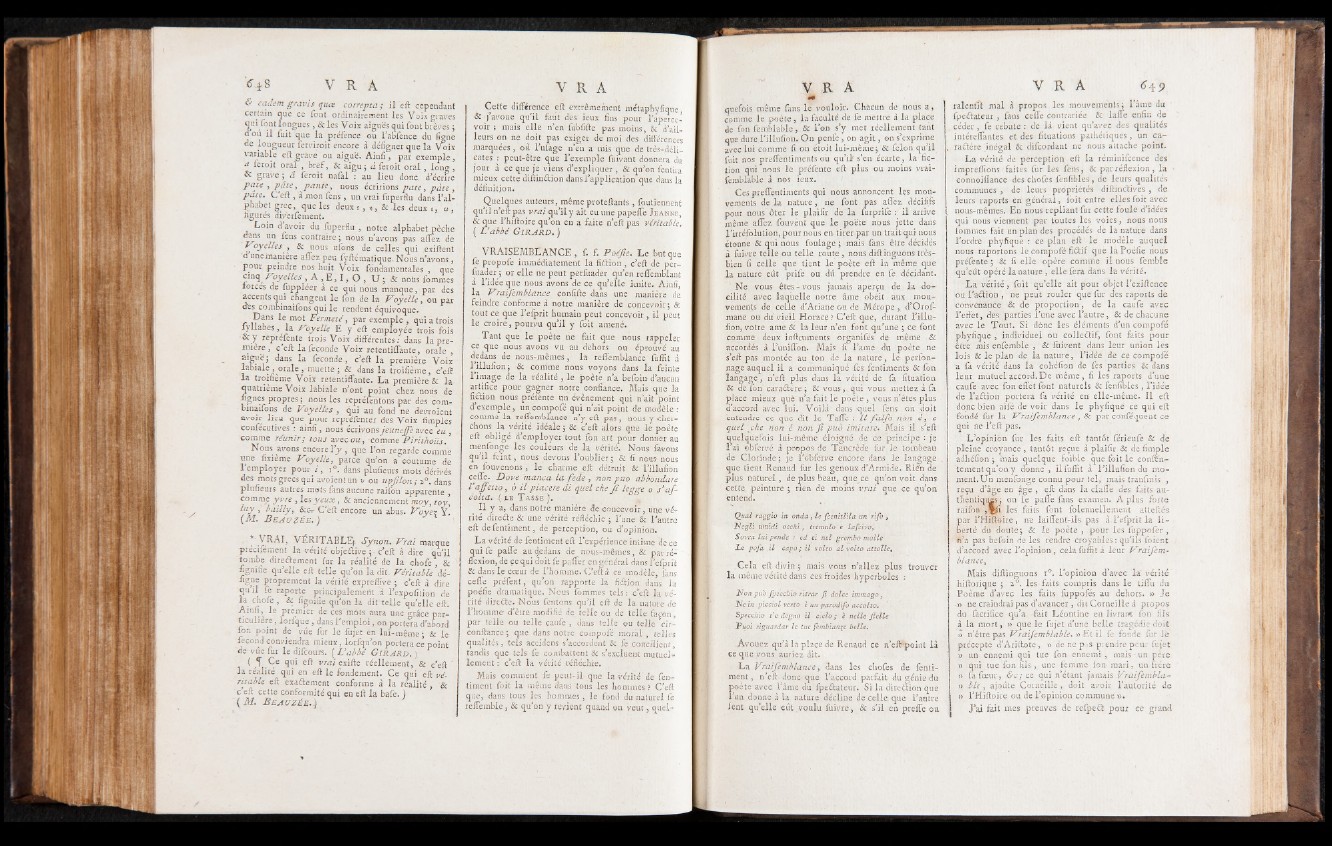 648 V R A
& eadem gravis quæ correpta; il eſt cependant
certain que ce ſont ordinairement les Voix graves
qui ſont longues, & les Voix aiguës qui ſont brèves;
d'où il ſuit que la préſence ou l'abſence du ſigne
de longueur ſerviroit encore à déſigner que la Voix
variable eſt grave ou aiguë. Ainſi, par exemple,
a ſeroit oral, bref, & aigu; ā ſeroit oral, long,
& grave; ã ſeroit naſal : au lieu donc d'écrire
pate, pâte, pante, nous écririons pate, pāte,
pãte. C'eſt, à mon ſens, un vrai ſuperflu dans l'al-
phabet grec, que les deux
figurés diverſement.
Loin d'avoir du ſuperflu, notre alphabet pèche
dans un ſens contraire; nous n'avons pas aſſez de
Voyelles, & nous uſons de celles qui exiſtent
d'une manière aſſez peu ſyſtématique. Nous n'avons,
pour peindre nos huit Voix fondamentales, que
cinq Voyelles, A, E, I, O, U; & nous ſommes
forcés de ſuppléer à ce qui nous manque, par des
accents qui changent le ſon de la Voyelle, ou par
des combinaiſons qui le rendent équivoque.
Dans le mot Fermeté, par exemple, qui a trois
ſyllabes, la Voyelle E y eſt employée trois fois
& y repréſente trois Voix différentes : dans la pre-
mière, c'eſt la ſeconde Voix retentiſſante, orale,
aiguë; dans la ſeconde, c'eſt la première Voix
labiale, orale, muette; & dans la troiſième, c'eſt
la troiſième Voix retentiſſante. La première & la
quatrième Voix labiale n'ont point chez nous de
ſignes propres; nous les repréſentons par des com-
binaiſons de Voyelles, qui au fond ne devroient
avoir lieu que pour repréſenter des Voix ſimples
conſécutives : ainſi, nous écrivons jeuneſſe avec eu,
comme réunir; tous avec ou, comme Pirithoüs.
Nous avons encore l'y, que l'on regarde comme
une ſixième Voyelle, parce qu'on a coutume de
l'employer pour i, 1°. dans pluſieurs mots dérivés
des mots grecs qui avoient un υ ou upſilon; 2°. dans
pluſieurs autres mots ſans aucune raiſon apparente,
comme yvre, les yeux, & anciennement moy, toy,
luy, bailly, &c. C'eſt encore un abus. Voyez Y.
(M. BEAUZÉE.)
* VRAI, VÉRITABLE, Synon. Vrai marque
préciſément la vérité objective; c'eſt à dire qu'il
tombe directement ſur la réalité de la choſe, &
ſignifie qu'elle eſt telle qu'on la dit. Véritable dé-
ſigne proprement la vérité expreſſive; c'eſt à dire
qu'il ſe raporte principalement à l'expoſition de
la choſe, & ſignifie qu'on la dit telle qu'elle eſt.
Ainſi, le premier de ces mots aura une grâce par-
ticulière, lorſque, dans l'emploi, on portera d'abord
ſon point de vûe ſur le ſujet en lui-même; & le
ſecond conviendra mieux, lorſqu'on portera ce point
de vûe ſur le diſcours. (L'abbé GIRARD.)
( ¶ Ce qui eſt vrai exiſte réellement, & c'eſt
la réalité qui en eſt le fondement. Ce qui eſt vé-
ritable eſt exactement conforme à la réalité, &
c'eſt cette conformité qui en eſt la baſe. )
(M. BEAUZÉE.)
V R A
Cette différence eſt extrêmement métaphyſique,
& j'avoue qu'il faut des ieux fins pour l'aperce-
voir; mais elle n'en ſubſiſte pas moins, & d'ail-
leurs on ne doit pas exiger de moi des différences
marquées, où l'uſage n'en a mis que de très-déli-
cates : peut-être que l'exemple ſuivant donnera du
jour à ce que je viens d'expliquer, & qu'on ſentira
mieux cette diſtinction dans l'application que dans la
définition.
Quelques auteurs, même proteſtants, ſoutiennent
qu'il n'eſt pas vrai qu'il y ait eu une papeſſe JEANNE,
& que l'hiſtoire qu'on en a faite n'eſt pas véritable.
(L'abbé GIRARD.)
VRAISEMBLANCE, ſ. f. Poéſie. Le but que
ſe propoſe immédiatement la fiction, c'eſt de per-
ſuader; or elle ne peut perſuader qu'en reſſemblant
à l'idée que nous avons de ce qu'elle imite. Ainſi,
la Vraiſemblance conſiſte dans une manière de
feindre conforme à notre manière de concevoir; &
tout ce que l'eſprit humain peut concevoir, il peut
le croire, pourvu qu'il y ſoit amené.
Tant que le poète ne fait que nous rappeler
ce que nous avons vu au dehors ou éprouvé au
dedans de nous-mêmes, la reſſemblance ſuffit à
l'illuſion; & comme nous voyons dans la feinte
l'image de la réalité, le poète n'a beſoin d'aucun
artifice pour gagner notre confiance. Mais que la
fiction nous préſente un évènement qui n'ait point
d'exemple, un compoſé qui n'ait point de modèle :
comme la reſſemblance n'y eſt pas, nous y cher-
chons la vérité idéale; & c'eſt alors que le poète
eſt obligé d'employer tout ſon art pour donner au
menſonge les couleurs de la vérité. Nous ſavons
qu'il feint, nous devons l'oublier; & ſi nous nous
en ſouvenons, le charme eſt détruit & l'illuſion
ceſſe. Dove manca la fede, non può abbondare
l'affetto, ò il piacere di quel che ſi legge o s'aſ-
colta. (LE TASSE).
Il y a, dans notre manière de concevoir, une vé-
rité directe & une vérité réfléchie; l'une & l'autre
eſt de ſentiment, de perception, ou d'opinion.
La vérité de ſentiment eſt l'expérience intime de ce
qui ſe paſſe au dedans de nous-mêmes, & par ré-
flexion, de ce qui doit ſe paſſer en général dans l'eſprit
& dans le cœur de l'homme. C'eſt à ce modèle, ſans
ceſſe préſent, qu'on rapporte la fiction dans la
poéſie dramatique. Nous ſommes tels : c'eſt la vé-
rité directe. Nous ſentons qu'il eſt de la nature de
l'homme d'être modifié de telle ou de telle façon,
par telle ou telle cauſe, dans telle ou telle cir-
conſtance; que dans notre compoſé moral, telles
qualités, tels accidens s'accordent & ſe concilient,
tandis que tels ſe combattent & s'excluent mutuel-
lement : c'eſt la vérité réfléchie.
Mais comment ſe peut-il que la vérité de ſen-
timent ſoit la même dans tous les hommes? C'eſt
que, dans tous les hommes, le fond du naturel ſe
reſſemble, & qu'on y revient quand on veut, quel-
V R A
quefois même ſans le vouloir. Chacun de nous a,
comme le poète, la faculté de ſe mettre à la place
de ſon ſemblable, & l'on s'y met réellement tant
que dure l'illuſion. On penſe, on agit, on s'exprime
avec lui comme ſi on étoit lui-même; & ſelon qu'il
ſuit nos preſſentiments ou qu'il s'en écarte, la fic-
tion qui nous le préſente eſt plus ou moins vrai-
ſemblable à nos ieux.
Ces preſſentiments qui nous annoncent les mou-
vements de la nature, ne ſont pas aſſez déciſifs
pour nous ôter le plaiſir de la ſurpriſe : il arrive
même aſſez ſouvent que le poète nous jette dans
l'irréſolution, pour nous en tirer par un trait qui nous
étonne & qui nous ſoulage; mais ſans être décidés
à ſuivre telle ou telle route, nous diſtinguons très-
bien ſi celle que tient le poète eſt la même que
la nature eût priſe ou dû prendre en ſe décidant.
Ne vous êtes-vous jamais aperçu de la do-
cilité avec laquelle notre âme obéit aux mou-
vements de celle d'Ariane ou de Mérope, d'Oroſ-
mane ou du vieil Horace? C'eſt que, durant l'illu-
ſion, votre ame & la leur n'en font qu'une; ce ſont
comme deux inſtruments organiſés de même &
accordés à l'uniſſon. Mais ſi l'ame du poète ne
s'eſt pas montée au ton de la nature, le perſon-
nage auquel il a communiqué ſes ſentiments & ſon
langage, n'eſt plus dans la vérité de ſa ſituation
& de ſon caractère; & vous, qui vous mettez à ſa
place mieux que n'a fait le poète, vous n'êtes plus
d'accord avec lui. Voilà dans quel ſens on doit
entendre ce que dit le Taſſe : Il falſo non è, e
quel che non è non ſi può imitare. Mais il s'eſt
quelquefois lui-même éloigné de ce principe : je
l'ai obſervé à propos de Tancrède ſur le tombeau
de Clorinde; je l'obſerve encore dans le langage
que tient Renaud ſur les genoux d'Armide. Rien de
plus naturel, de plus beau, que ce qu'on voit dans
cette peinture; rien de moins vrai que ce qu'on
entend.
Qual raggio in onda, le ſcintilla un riſo,
Negli umidi occhi, tremulo e laſcivo,
Sovra lui pende : ed ei nel grembo molle
Le poſa il capo; il volto al volto attolle,
Cela eſt divin; mais vous n'allez plus trouver
la même vérité dans ces froides hyperboles :
Non può ſpecchio ritrar ſi dolce immago,
Ne in picciol vetro è un paradiſo accolto.
Specchio t'è degno il cielo; è nelle ſtelle
Puoi riguardar le tue ſembianze belle.
Avouez qu'à la place de Renaud ce n'eſt point là
ce que vous auriez dit.
La Vraiſemblance, dans les choſes de ſenti-
ment, n'eſt donc que l'accord parfait du génie du
poète avec l'âme du ſpectateur. Si la direction que
l'on donne à la nature décline de celle que l'âme
ſent qu'elle eût voulu ſuivre, & s'il en preſſe ou
V R A 649
ralentit mal à propos les mouvements; l'âme du
ſpectateur, ſans ceſſe contrariée & laſſe enfin de
céder, ſe rebute : de là vient qu'avec des qualités
intéreſſantes et des ſituations pathétiques, un ca-
ractère inégal & diſcordant ne nous attache point.
La vérité de perception eſt la réminiſcence des
impreſſions faites ſur les ſens, & par réflexion, la
connoiſſance des choſes ſenſibles, de leurs qualités
communes, de leurs propriétés diſtinctives, de
leurs raports en général, ſoit entre elles ſoit avec
nous-mêmes. En nous repliant ſur cette foule d'idées
qui nous viennent par toutes les voies, nous nous
ſommes fait un plan des procédés de la nature dans
l'ordre phyſique : ce plan eſt le modèle auquel
nous raportons le compoſé fictif que la Poéſie nous
préſente; & ſi elle opère comme il nous ſemble
qu'eût opéré la nature, elle ſera dans la vérité.
La vérité, ſoit qu'elle ait pour objet l'exiſtence
ou l'action, ne peut rouler que ſur des raports de
convenance & de proportion, de la cauſe avec
l'effet, des parties l'une avec l'autre, & de chacune
avec le Tout. Si donc les éléments d'un compoſé
phyſique, individuel ou collectif, ſont faits pour
être mis enſemble, & ſuivent dans leur union les
lois & le plan de la nature, l'idée de ce compoſé
a ſa vérité dans la cohéſion de ſes parties & dans
leur mutuel accord. De même, ſi les raports d'une
cauſe avec ſon effet ſont naturels & ſenſibles, l'idée
de l'action portera ſa vérité en elle-même. Il eſt
donc bien aiſé de voir dans le phyſique ce qui eſt
fondé ſur la Vraiſemblance, & par conſéquent ce
qui ne l'eſt pas.
L'opinion ſur les faits eſt tantôt ſérieuſe & de
pleine croyance, tantôt reçue à plaiſir & de ſimple
adhéſion; mais quelque foible que ſoit le conſen-
tement qu'on y donne, il ſuffit à l'illuſion du mo-
ment. Un menſonge connu pour tel, mais tranſmis,
reçu d'âge en âge, eſt dans la claſſe des faits au-
thentiques; on le paſſe ſans examen. A plus forte
raiſon, ſi les faits ſont ſolennellement atteſtés
par l'Hiſtoire, ne laiſſent-ils pas à l'eſprit la li-
berté du doute; & le poète, pour les ſuppoſer,
n'a pas beſoin de les rendre croyables : qu'ils ſoient
d'accord avec l'opinion, cela ſuffit à leur Vraiſem-
blance,
Mais diſtinguons 1°. l'opinion d'avec la vérité
hiſtorique; 2°. les faits compris dans le tiſſu du
Poème d'avec les faits ſuppoſés au dehors. » Je
» ne craindrai pas d'avancer, dit Corneille à propos
du ſacrifice qu'a fait Léontine en livrant ſon fils
à la mort, » que le ſujet d'une belle tragédie doit
» n'être pas Vraiſemblable. » Et il ſe fonde ſur le
précepte d'Ariſtote, » de ne pas prendre pour ſujet
» un ennemi qui tue ſon ennemi, mais un père
» qui tue ſon fils, une femme ſon mari, un frère
» ſa ſœur, &c; ce qui n'étant jamais Vraiſembla-
» ble, ajoûte Corneille, doit avoir l'autorité de
» l'Hiſtoire ou de l'opinion commune ».
J'ai fait mes preuves de reſpect pour ce grand